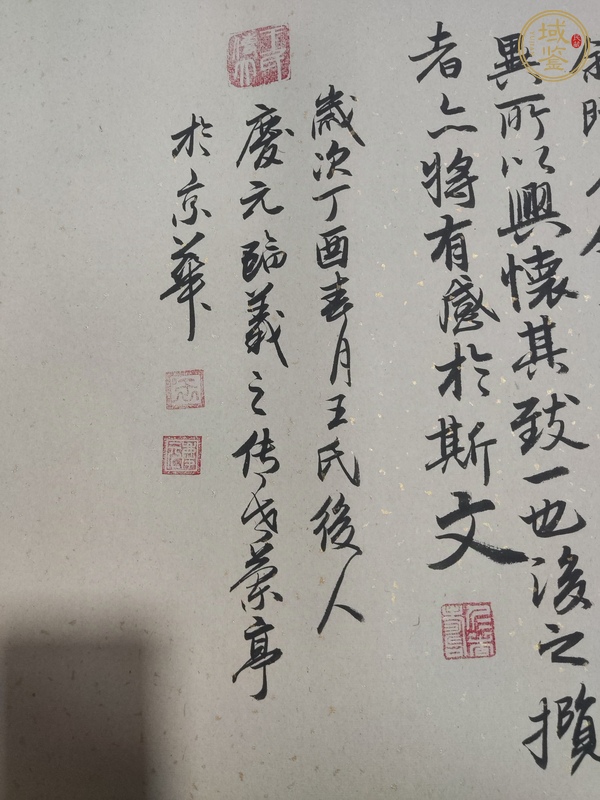 異所以興懷其致一也後之攬
者亦將有感於斯文
歲次丁酉春月王氏後人
慶元臨羲之传世蘭亭
於京華
域鉴